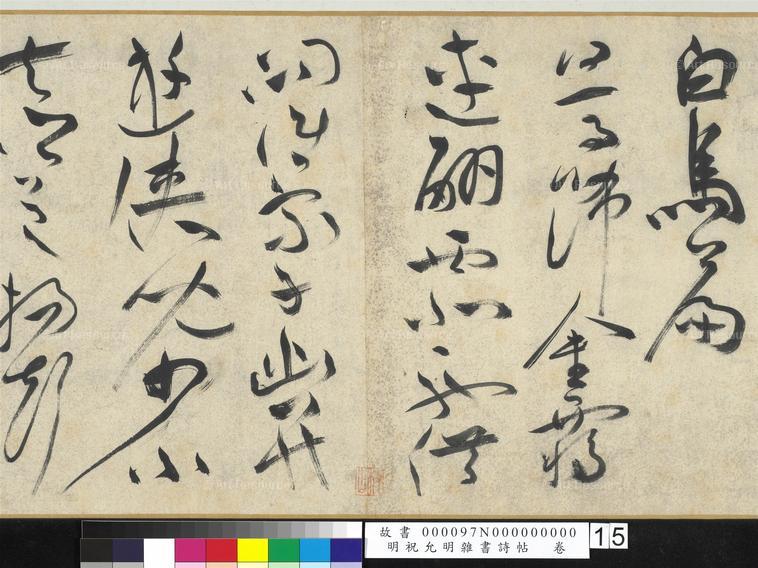 白馬篇
白馬飾金羈
連翩西北馳借
問誰家子幽并
遊俠兒少小
去鄉邑揚聲
故書 000097N000000000
明祝允明雜書詩帖 卷
15